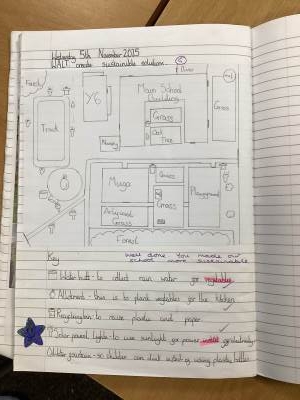 Wednesday 5th November 2015
WALT create sustainable solutions.
Field
Y6
Main School
Building
Grass
Oak
Tree
Nursery
Grass
Track
Muga
Grass
Grass
Playground
Artificial
Grass
Forest
Key
Well done. You made our
school more sustainable
Water butt - to collect rain water for vegetables
Allotment - this is to plant vegetables for the kitchen
to reuse plastic and paper
Solar power lights - to use sunlight for power
Water fountain - so children can use instead of using plastic bottles